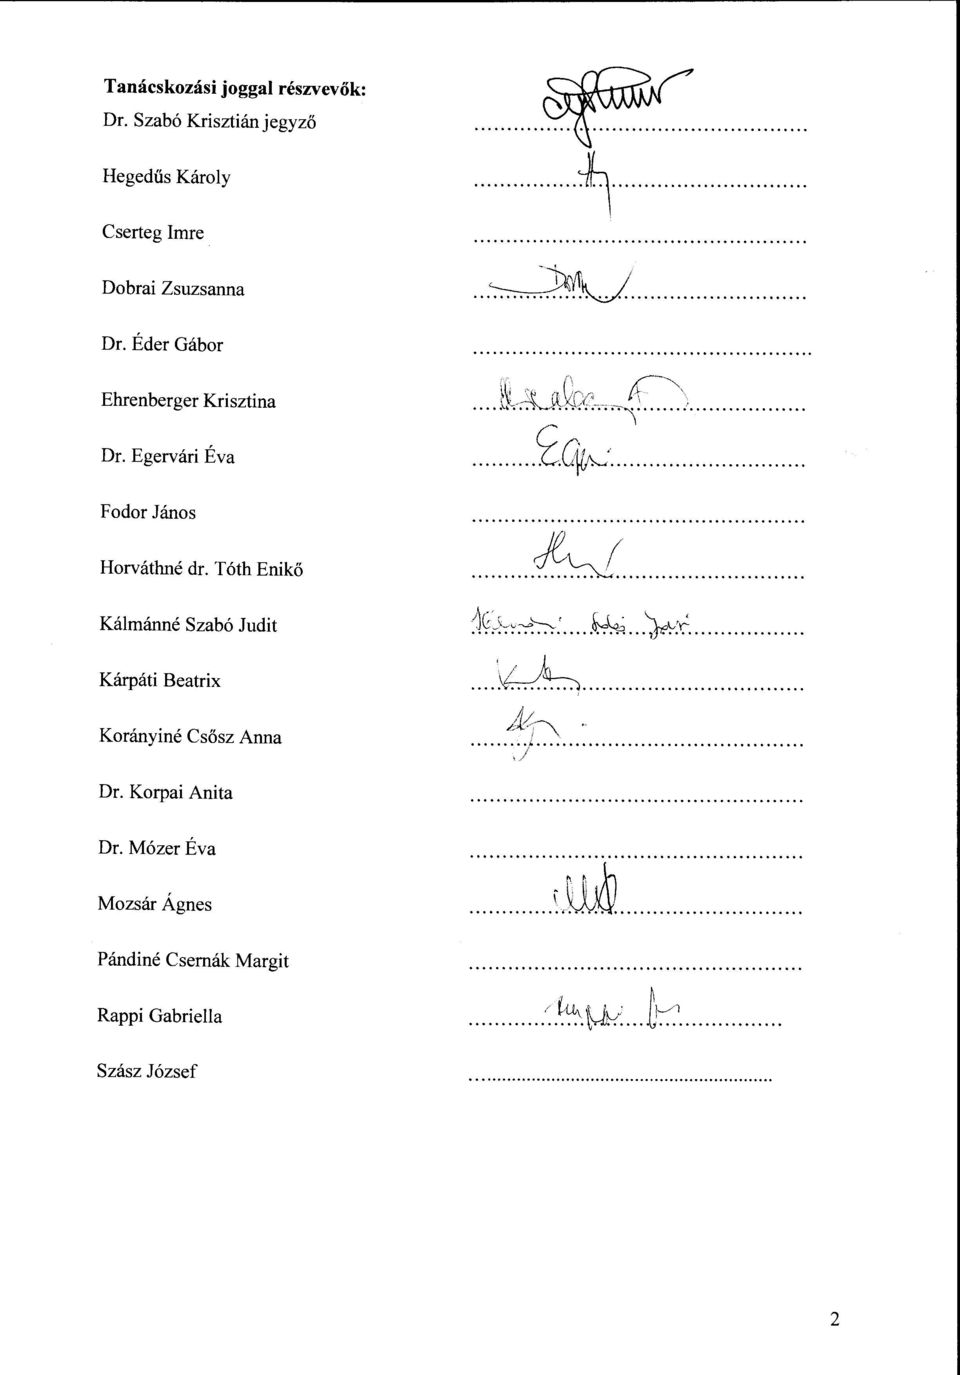 Tanácskozási joggal részvevők:
Dr. Szabó Krisztián jegyző
Hegedűs Károly
Cserteg Imre
Dobrai Zsuzsanna
Dr. Éder Gábor
Ehrenberger Krisztina
Dr. Egervári Éva
Fodor János
Horváthné dr. Tóth Enikő
Kálmánné Szabó Judit
Kárpáti Beatrix
Korányiné Csősz Anna
Dr. Korpai Anita
Dr. Mózer Éva
Mozsár Ágnes
Pándiné Csernák Margit
Rappi Gabriella
Szász József
2